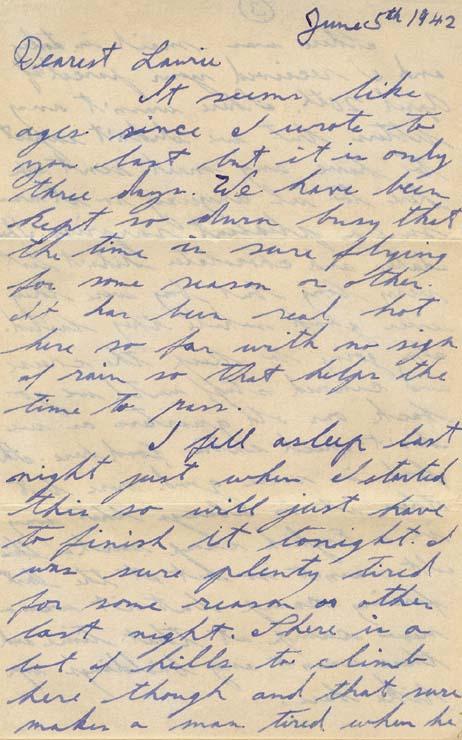 June 5th 1942
Dearest Laurie
It seems like
ages since I wrote to
you last but it is only
three days. We have been
kept so durn busy that
the time is sure flying
for some reason or other.
It has been real hot
here so far with no sign
of rain so that helps the
time to pass.
I fell asleep last
night just when I started
this so will just have
to finish it tonight. I
was sure plenty tired
for some reason or other
last night. There is a
lot of hills to climb
here though and that sure
makes a man tired when he